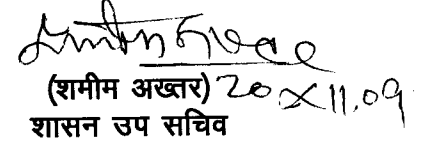 (शमीम अख्तर) 20 x 11.09
शासन उप सचिव